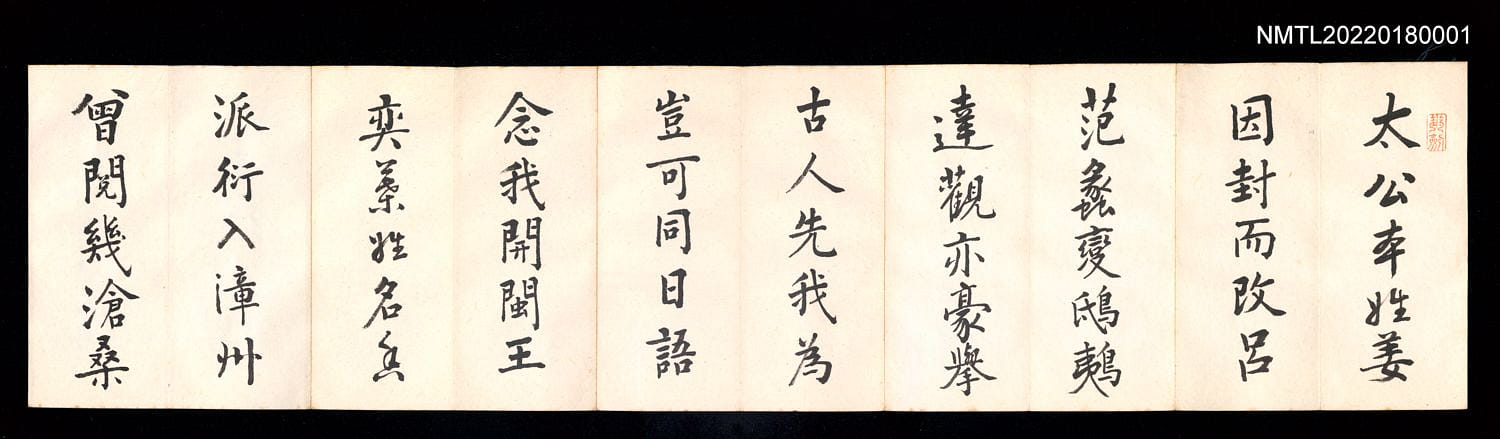 NMTL20220180001
太公本姓姜
因封而改呂
范蠡變鴟鶇
達觀亦豪舉
古人先我為
豈可同日語
念我開閩王
奕葉姓名香
派衍入漳州
曾閱幾滄桑